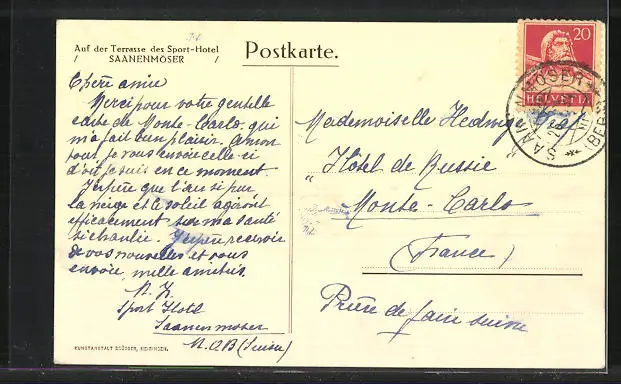 Auf der Terrasse des Sport-Hotel
SAANENMÖSER
Postkarte.
20
HELVETIA
SAANENMÖSER
(BERN)
Chère amie
Merci pour votre gentille
carte de Monte-Carlo, qui
m'a fait bien plaisir. A mon
tour, je vous envoie celle-ci
d'où je suis en ce moment
J'espère que l'air si pur
la neige et le soleil agiront
efficacement sur ma santé
si ébranlée. J'espère recevoir
de vos nouvelles et vous
envoie mille amitiés.
Sport Hotel
Saanenmöser
M.O.B (Suisse)
Mademoiselle Hedwige
"Hôtel de Russie
Monte-Carlo
(France)
Prière de faire suivre
KUNSTANSTALT BRÜGGER, MEIRINGEN.